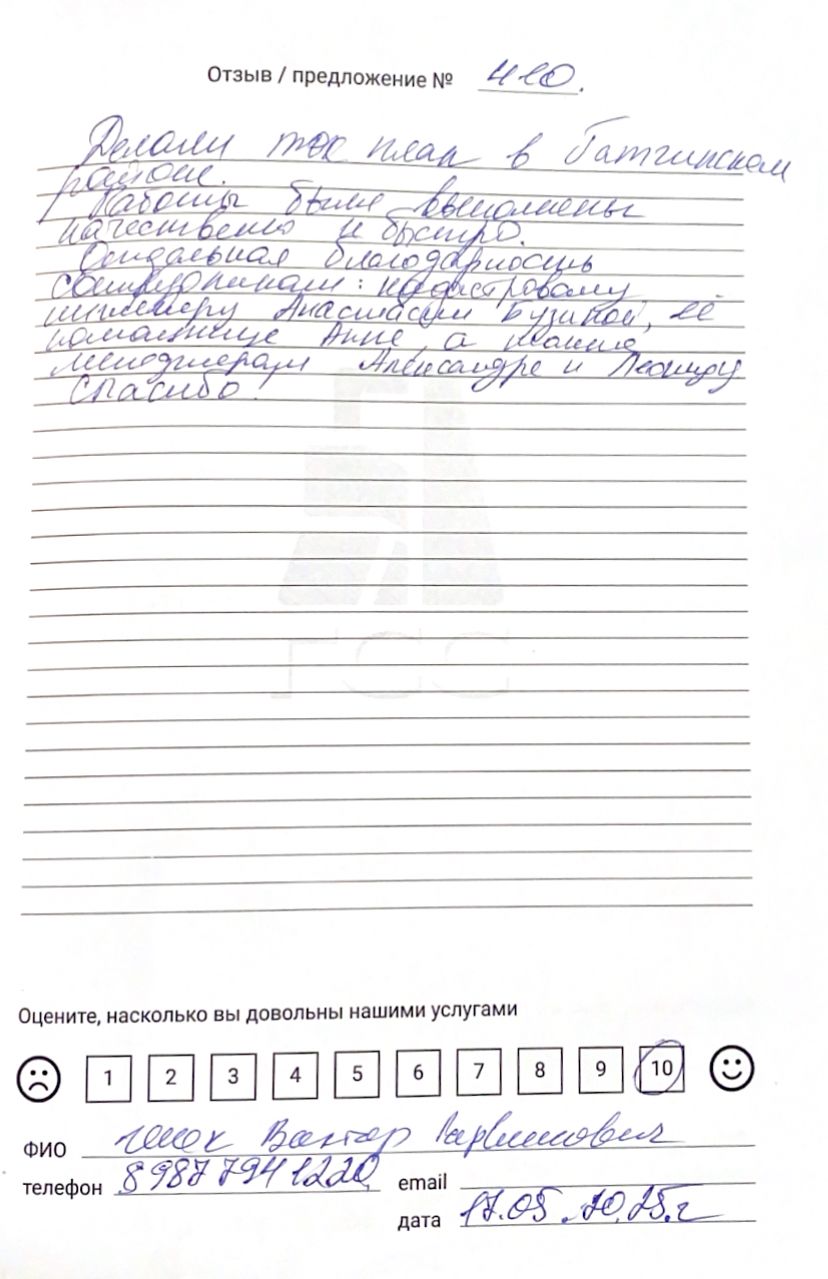 Отзыв / предложение № 410.
Делали тех план в Гатчинском
районе.
Работы были выполнены
качественно и быстро.
Отдельная благодарность
сотрудникам: кадастровому
инженеру Анастасии Бузиной, её
помощнице Анне, а также
менеджерам Александре и Леониду
Спасибо!
ГСС
Оцените, насколько вы довольны нашими услугами
1 2 3 4 5 6 7 8 9 10
ФИО Виктор
телефон 89877941220
email
дата 17.05.2025.г